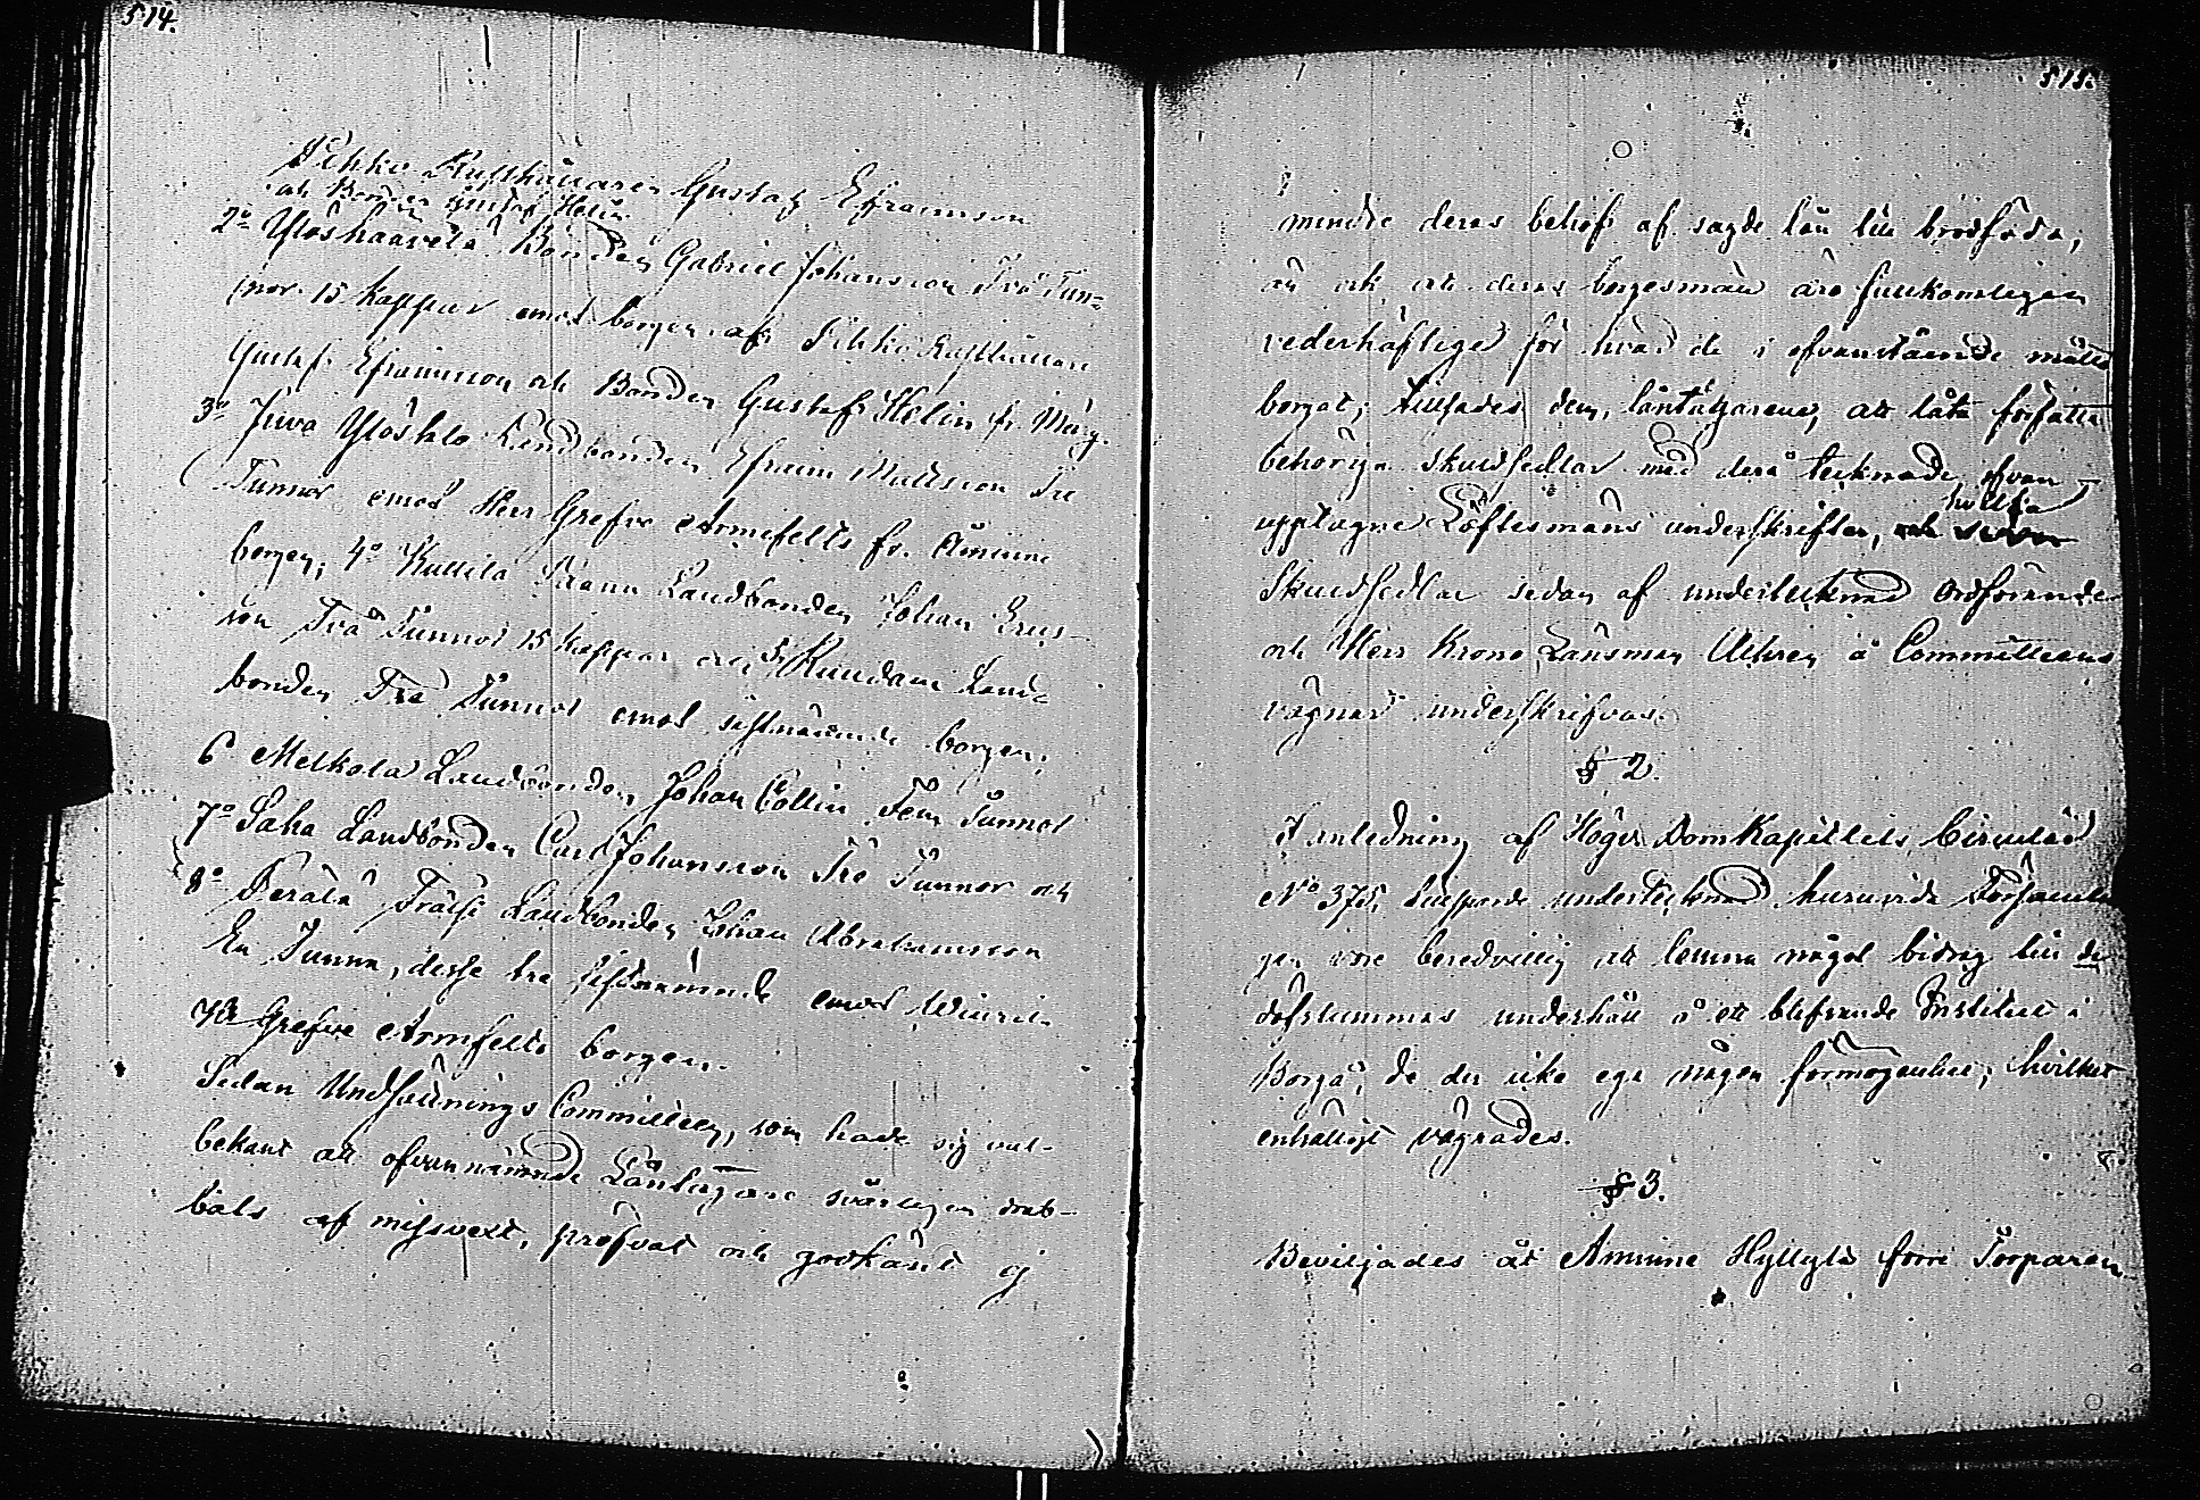 514.
Pihko Rusthållaren Gustaf Efraimsson
och Bonden Gustaf Helin
2o Ylöshaavela Bonden Gabriel Johansson Två Tun=
nor 15 Kappar emot borgen af Pihko Rusthållare
Gustaf Efraimsson och Bonden Gustaf Helin fr. Märy.
3o Juva Ylösklo Landbonden Efraim Mattsson Tre
Tunnor emot Herr Grefve Armfelts fr. Åminne
borgen; 4o Kullila Landbonden Johan Ers-
son Två Tunnor 15 Kappar och 5o Land=
bonden Tre Tunnor emot sistnämnde borgen;
6 Melkola Landbonden Johan Collin Fem Tunnor
7o Saha Landbonden Carl Johansson Tre Tunnor och
8o Perälä Frälse Landbonden Johan Abrahamsson
En Tunna, desse tre sistnämnde emot
Grefve Armfelts borgen.
Sedan Undsättnings Committeen, som hade sig väl-
bekant att ofvannämnde Låntagare svårligen drab-
bats af missvext, pröfvat och godkänt ej
515.
mindre deras behof af sagde lån till brödföda,
än ock att deras borgesmän äro fullkomligen
vederhäftige för hvad de i ofvanstående måtto
borgat; tillsades dem, låntagarene, att låta författa
behöriga skuldsedlar med derå tecknade ofvan-
upptagne Löftesmäns underskrifter, hvilka
Skuldsedlar sedan af undertecknad Ordförande
och Herr Krono Länsman Ahren å Committeens
vägnar underskrifvas.
§ 2.
I anledning af Högv. DomKapitlets Circulär
No 375, undertecknad huruvida Församlin
gen vore beredvillig att lemna något bidrag till de
döfstummas underhåll å ett blifvande Institut i
Borgå, de der icke ega någon förmögenhet, hvilket
enhälligt vägrades.
§ 3.
Beviljades åt Åminne Hyllylä förre Torparen